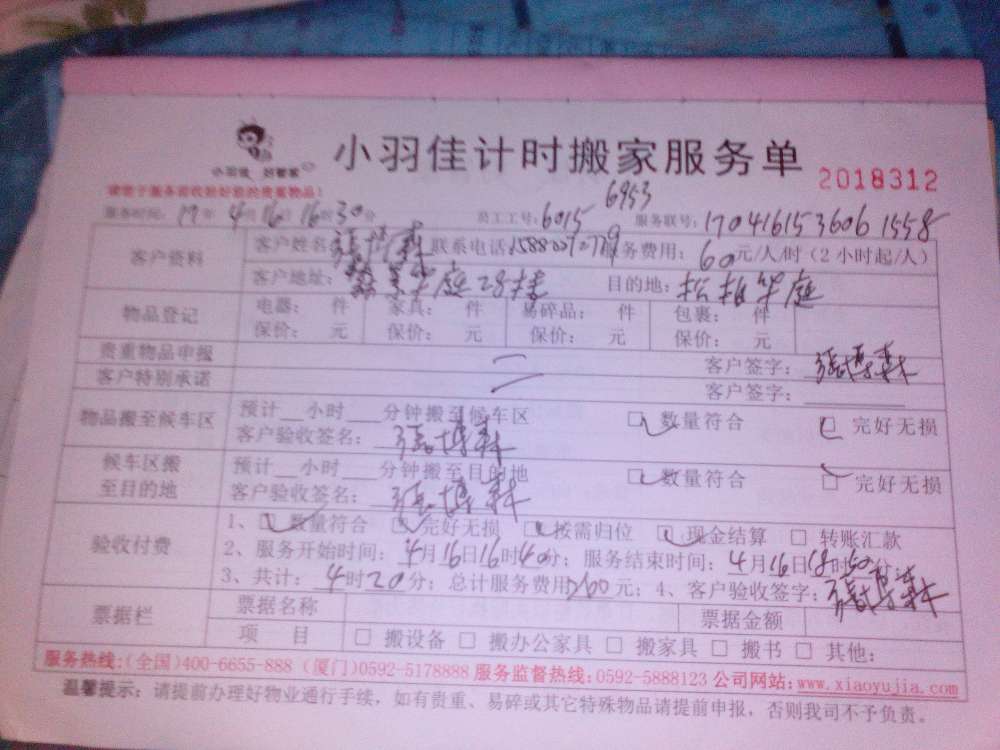 小羽佳 好管家
小羽佳计时搬家服务单
2018312
请您于服务前收拾好您的贵重物品！
6953
服务时间：17年4月16日16时30分 员工工号：6015 服务联号：1704161536061558
客户资料 客户姓名：张博森 联系电话： 服务费用：60元/人/时（2小时起/人）
客户地址：华庭28楼 目的地：松柏华庭
物品登记 电器： 件 家具： 件 易碎品： 件 包裹： 件
保价： 元 保价： 元 保价： 元 保价： 元
贵重物品申报 客户签字：张博森
客户特别承诺 客户签字：
物品搬至候车区 预计__小时___分钟搬至候车区 数量符合 完好无损
客户验收签名：张博森
候车区搬至目的地 预计__小时___分钟搬至目的地 数量符合 完好无损
客户验收签名：张博森
验收付费 1、数量符合 完好无损 按需归位 现金结算 转账汇款
2、服务开始时间：4月16日16时40分；服务结束时间：4月16日18时50分
3、共计：4时20分；总计服务费用260元；4、客户验收签字：张博森
票据栏 票据名称 票据金额
项 目 搬设备 搬办公家具 搬家具 搬书 其他：
服务热线：(全国)400-6655-888 (厦门)0592-5178888 服务监督热线：0592-5888123 公司网站：www.xiaoyujia.com
温馨提示：请提前办理好物业通行手续，如有贵重、易碎或其它特殊物品请提前申报，否则我司不予负责。